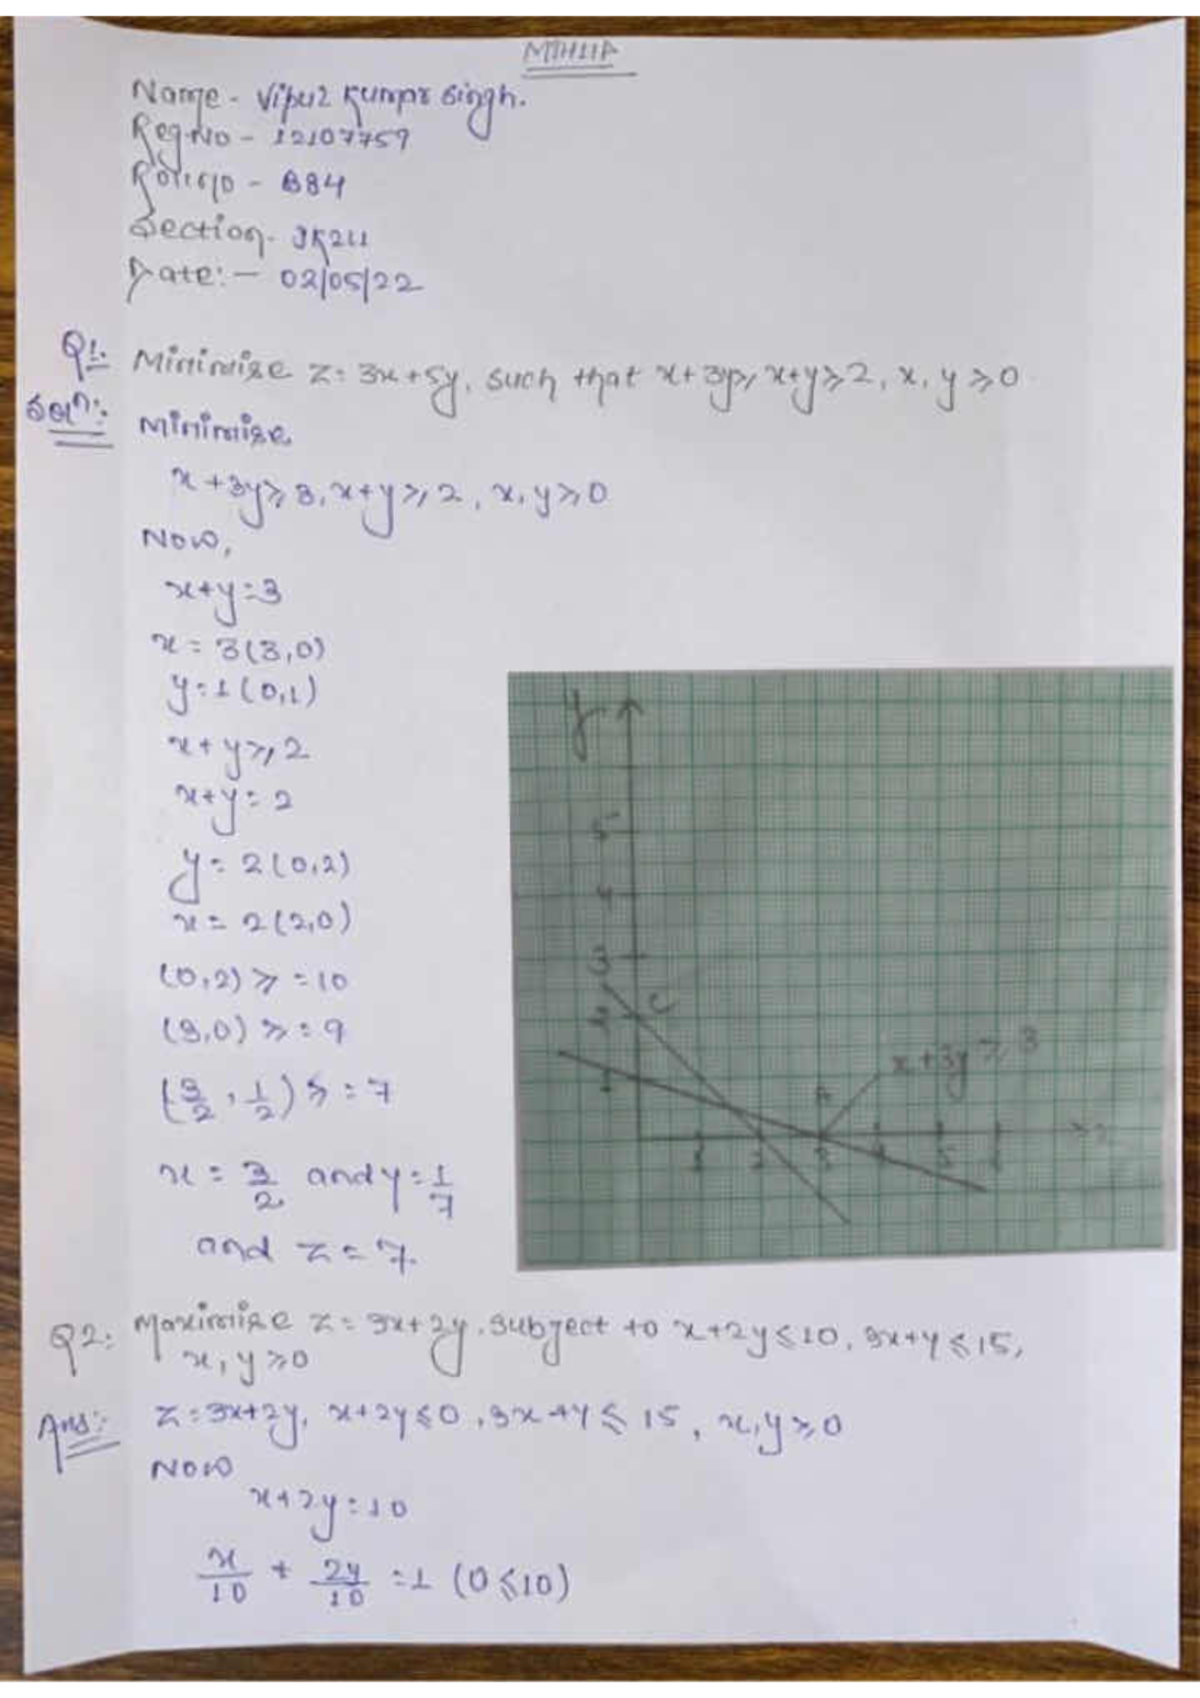 MTH11A
Name - Vipul Kumar Singh.
Reg.No - 12107759
Roll no - B84
Section -
Date:- 02/05/22
Q1. Minimise z = 3x+5y, such that x+3y≥, x+y≥2, x, y≥0
Solⁿ:
Minimise
x+3y≥3, x+y≥2, x, y≥0
Now,
x+y=3
x = 3(3,0)
y=1(0,1)
x+y≥2
x+y=2
y = 2(0,2)
x = 2(2,0)
(0,2) ≥ = 10
(3,0) ≥ = 9
(3/2, 1/2) ≥ = 7
x = 3/2 and y = 1/7
and z = 7.
y
5
4
3
2 C
x+3y ≥ 3
1 A
1 2 3 4 5 6 x
Q2: Maximise z = 3x+2y, subject to x+2y≤10, 3x+y≤15,
x, y≥0
Ans:- z=3x+2y, x+2y≤0, 3x+y≤15, x,y≥0
Now
x+2y=10
x/10 + 2y/10 = 1 (0≤10)